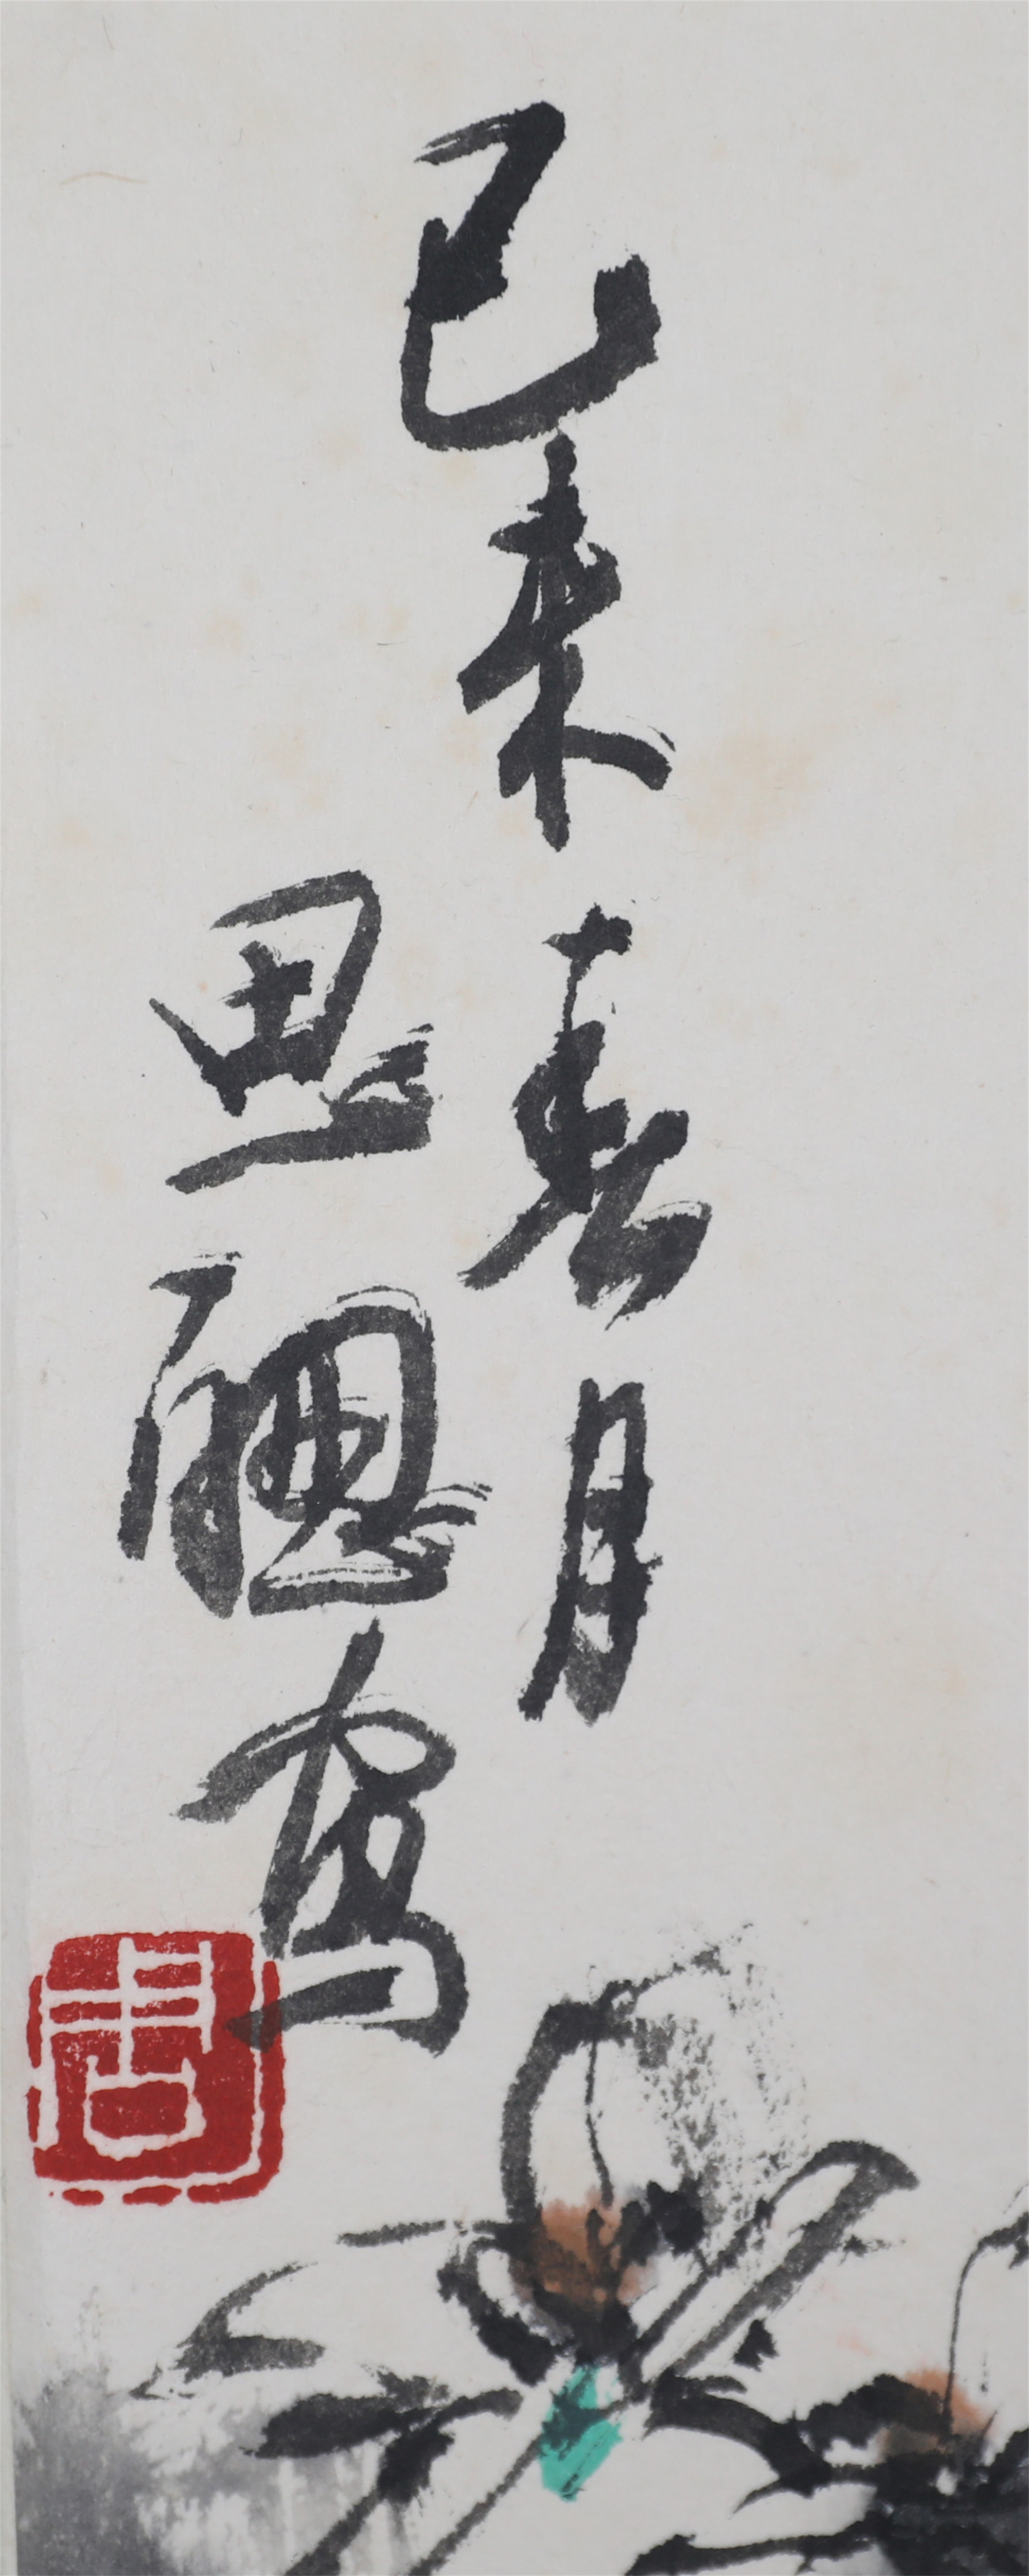 己未春月
思聰寫
周